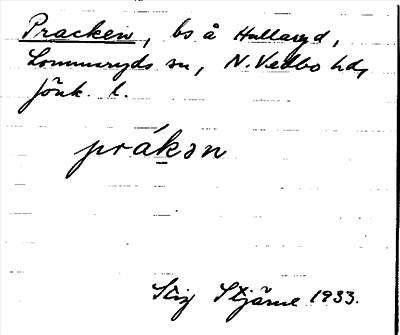 Pracken, bs å Hullaryd,
Lommaryds sn, N. Vedbo hd,
Jönk. l.
prákən
Stig Stjärne 1933.